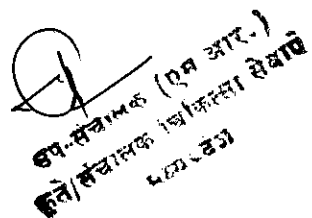 उप-संचालक (एम आर.)
कृते/संचालक चिकित्सा सेवायें